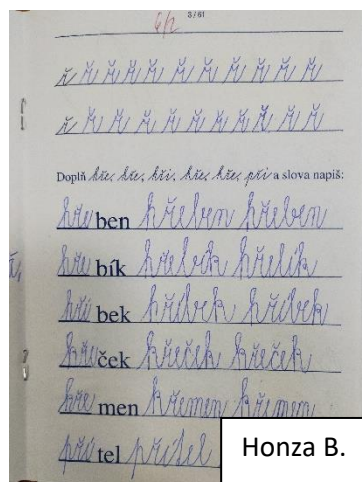 3/61
ř ř ř ř ř ř ř ř ř ř ř
ř ř ř ř ř ř ř ř ř ř ř
Doplň hře, hře, hři, kře, kře, pří a slova napiš:
hře ben hřeben hřeben
hře bík
hří bek hříbek hříbek
kře ček křeček křeček
kře men křemen křemen
pří tel přítel
Honza B.